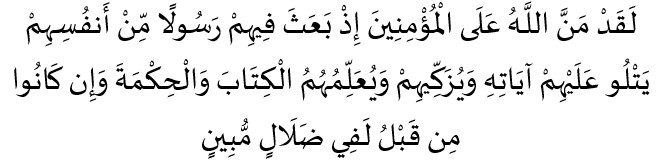 لَقَدْ مَنَّ اللَّهُ عَلَى الْمُؤْمِنِينَ إِذْ بَعَثَ فِيهِمْ رَسُولًا مِّنْ أَنفُسِهِمْ
يَتْلُو عَلَيْهِمْ آيَاتِهِ وَيُزَكِّيهِمْ وَيُعَلِّمُهُمُ الْكِتَابَ وَالْحِكْمَةَ وَإِن كَانُوا
مِن قَبْلُ لَفِي ضَلَالٍ مُّبِينٍ